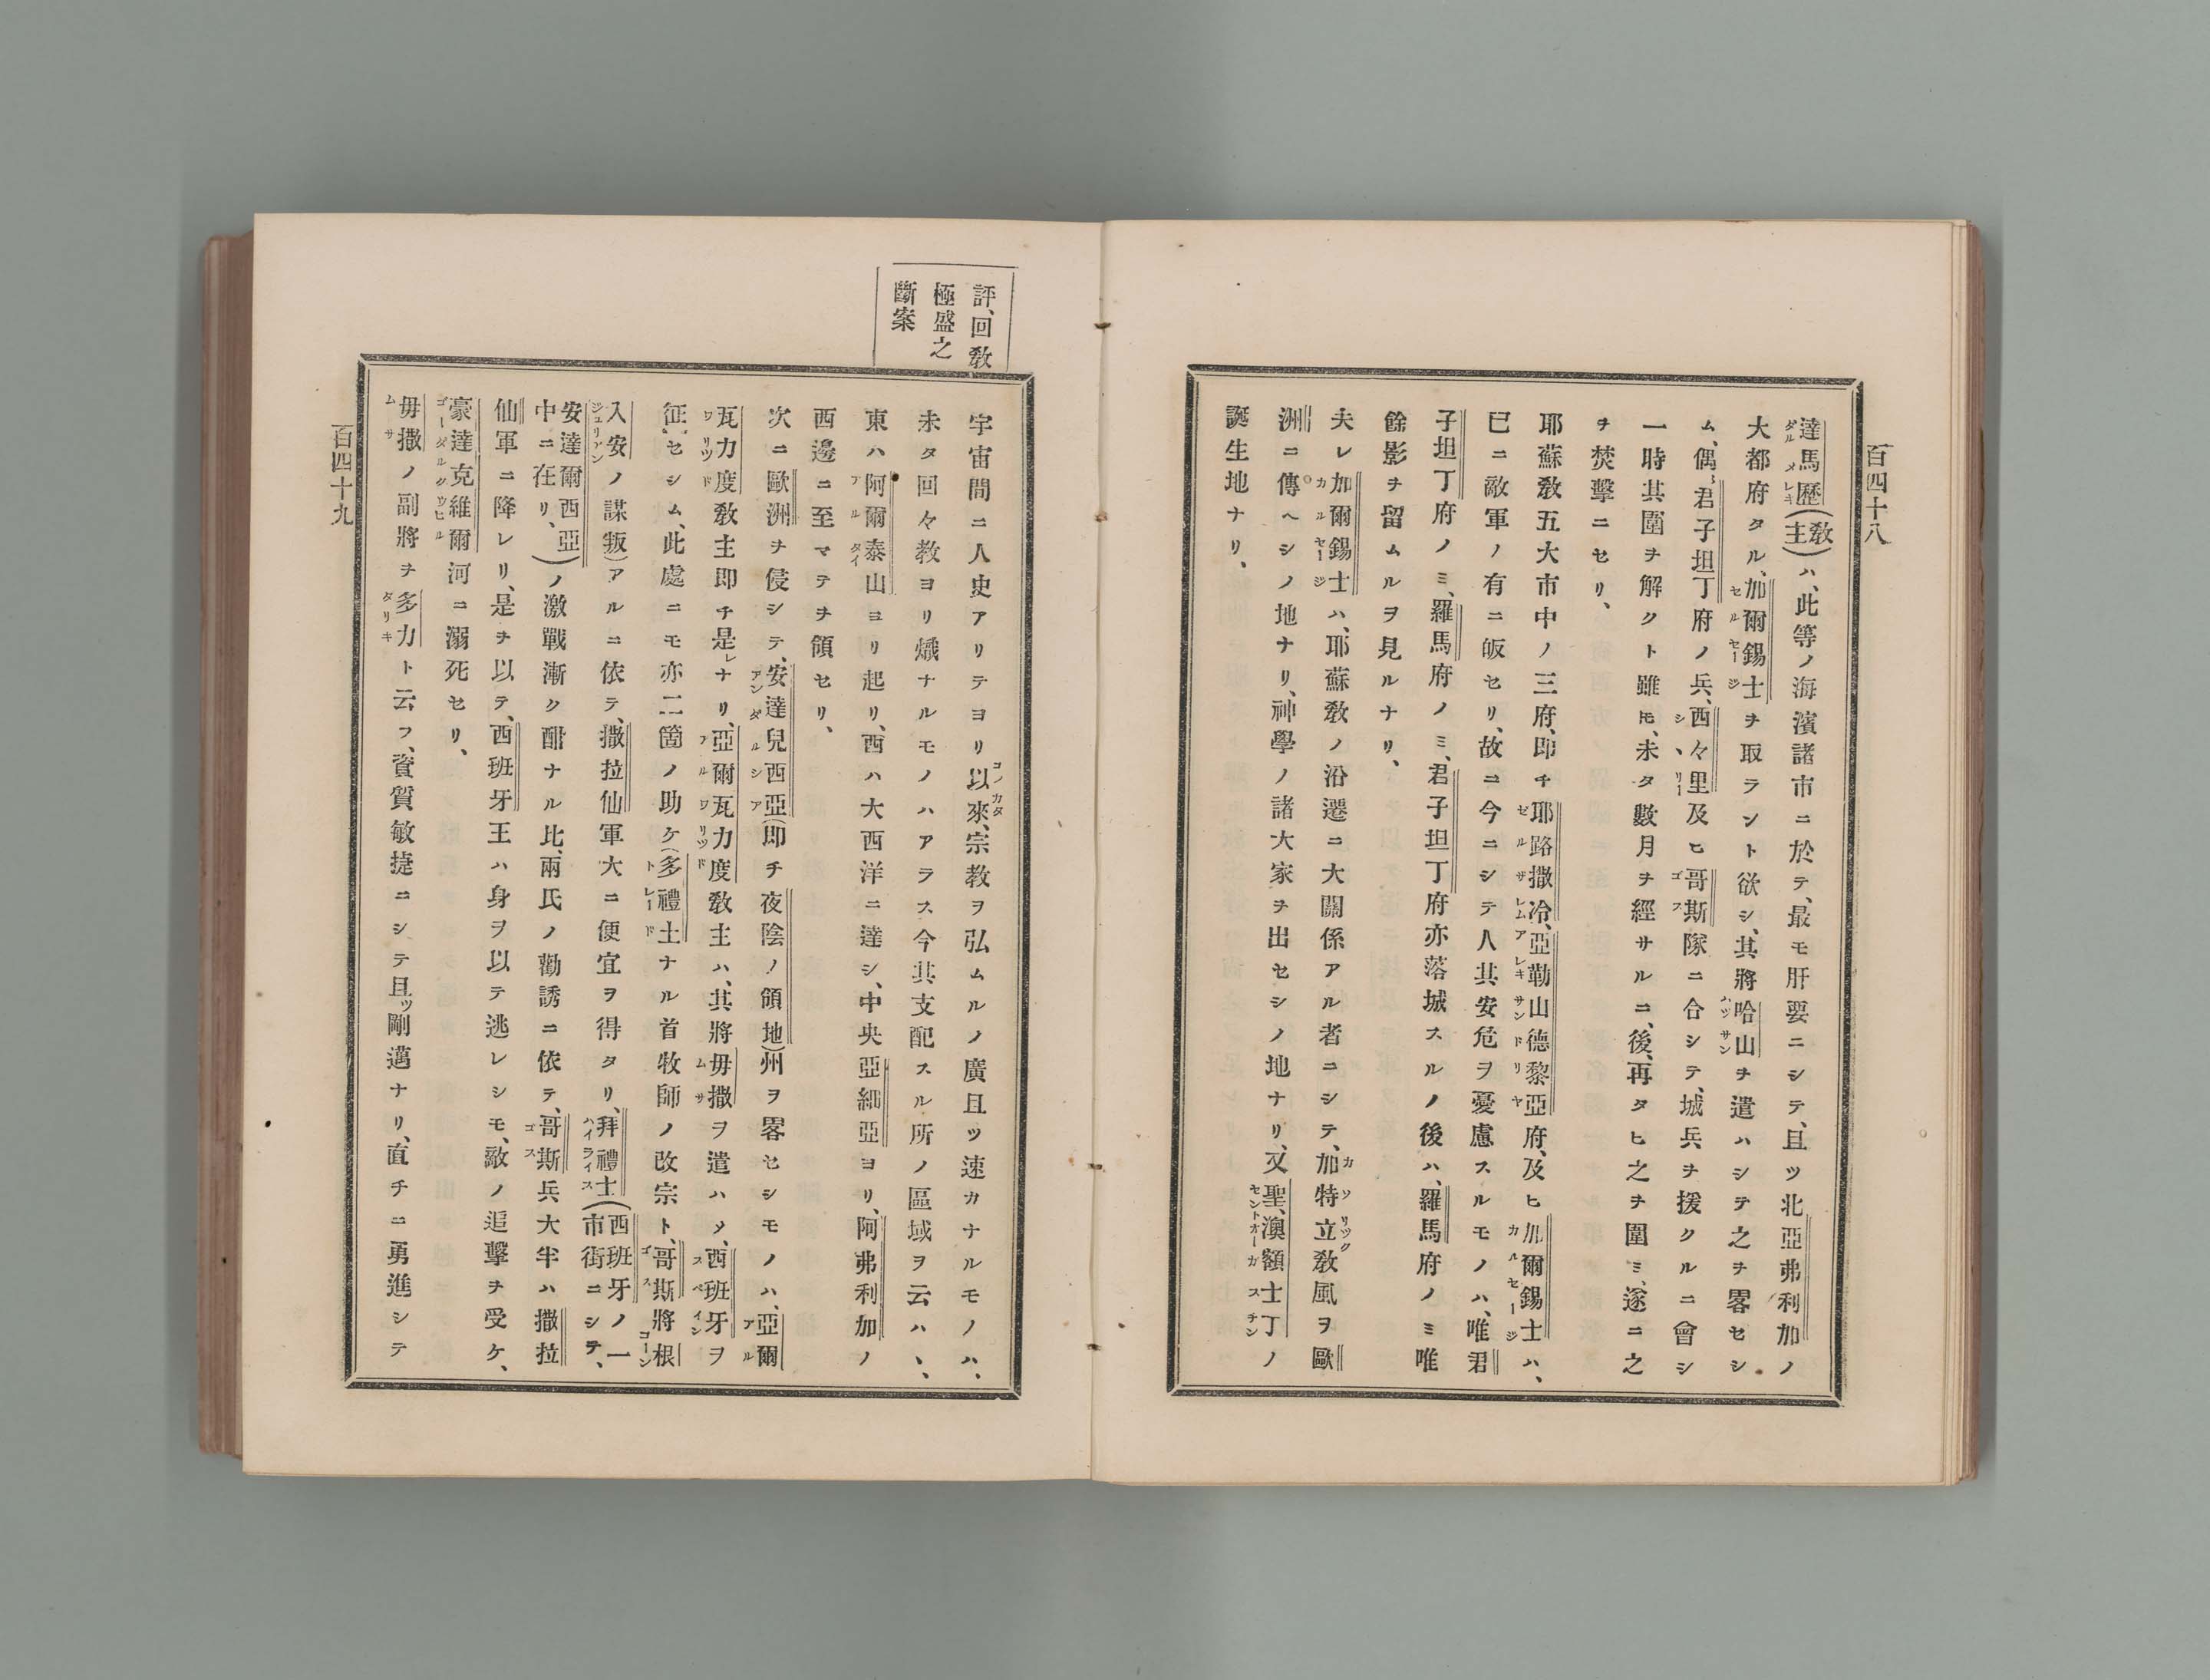 百四十八
達馬歷(教主)ハ、此等ノ海濱諸市ニ於テ、最モ肝要ニシテ、且ツ北亞弗利加ノ
大都府タル、加爾錫士ヲ取ラント欲シ、其將哈山ヲ遣ハシテ之ヲ畧セシ
ム、偶、君子坦丁府ノ兵、西々里及ヒ哥斯隊ニ合シテ、城兵ヲ援クルニ會シ
一時其圍ヲ解クト雖モ、未タ數月ヲ經サルニ、後、再タヒ之ヲ圍ミ、遂ニ之
ヲ焚擊ニセリ、
耶蘇敎五大市中ノ三府、即チ耶路撒冷、亞勒山德黎亞府、及ヒ加爾錫士ハ、
巳ニ敵軍ノ有ニ皈セリ、故ニ今ニシテ人其安危ヲ憂慮スルモノハ、唯君
子坦丁府ノミ、羅馬府ノミ、君子坦丁府亦落城スルノ後ハ、羅馬府ノミ唯
餘影ヲ留ムルヲ見ルナリ、
夫レ加爾錫士ハ、耶蘇敎ノ沿遷ニ大關係アル者ニシテ、加特立敎風ヲ歐
洲ニ傳ヘシノ地ナリ、神學ノ諸大家ヲ出セシノ地ナリ、又聖澳額士丁ノ
誕生地ナリ、
評、回敎
極盛之
斷案
宇宙間ニ人史アリテヨリ以來、宗教ヲ弘ムルノ廣且ツ速カナルモノハ、
未タ回々教ヨリ熾ナルモノハアラス今其支配スル所ノ區域ヲ云ハヽ、
東ハ阿爾泰山ヨリ起リ、西ハ大西洋ニ達シ、中央亞細亞ヨリ、阿弗利加ノ
西邊ニ至マテヲ領セリ、
次ニ歐洲ヲ侵シテ、安達兒西亞(即チ夜陰ノ領地)州ヲ畧セシモノハ、亞爾
瓦力度敎主即チ是レナリ、亞爾瓦力度敎主ハ、其將毋撒ヲ遣ハメ、西班牙ヲ
征セシム、此處ニモ亦二箇ノ助ケ(多禮土ナル首牧師ノ改宗ト、哥斯將根
入安ノ謀叛)アルニ依テ、撒拉仙軍大ニ便宜ヲ得タリ、拜禮士(西班牙ノ一市街ニシテ、
安達爾西亞中ニ在リ、)ノ激戰漸ク酣ナル比、兩氏ノ勸誘ニ依テ、哥斯兵大半ハ撒拉
仙軍ニ降レリ、是ヲ以テ、西班牙王ハ身ヲ以テ逃レシモ、敵ノ追擊ヲ受ケ、
豪達克維爾河ニ溺死セリ、
毋撒ノ副將ヲ多力ト云フ、資質敏捷ニシテ且ツ剛邁ナリ、直チニ勇進シテ
百四十九